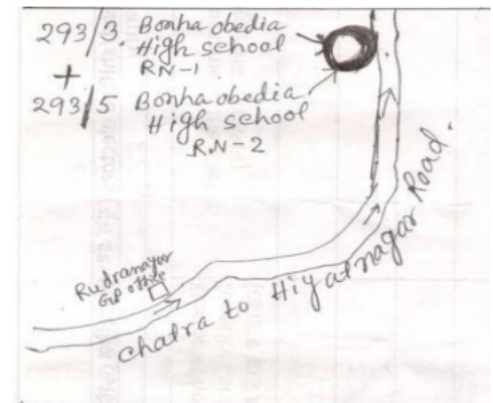 293/3. Bonha obedia
High school
RN-1
+
293/5 Bonha obedia
High school
RN-2
Rudranagar
GP office
Chatra to Hiyatnagar Road.